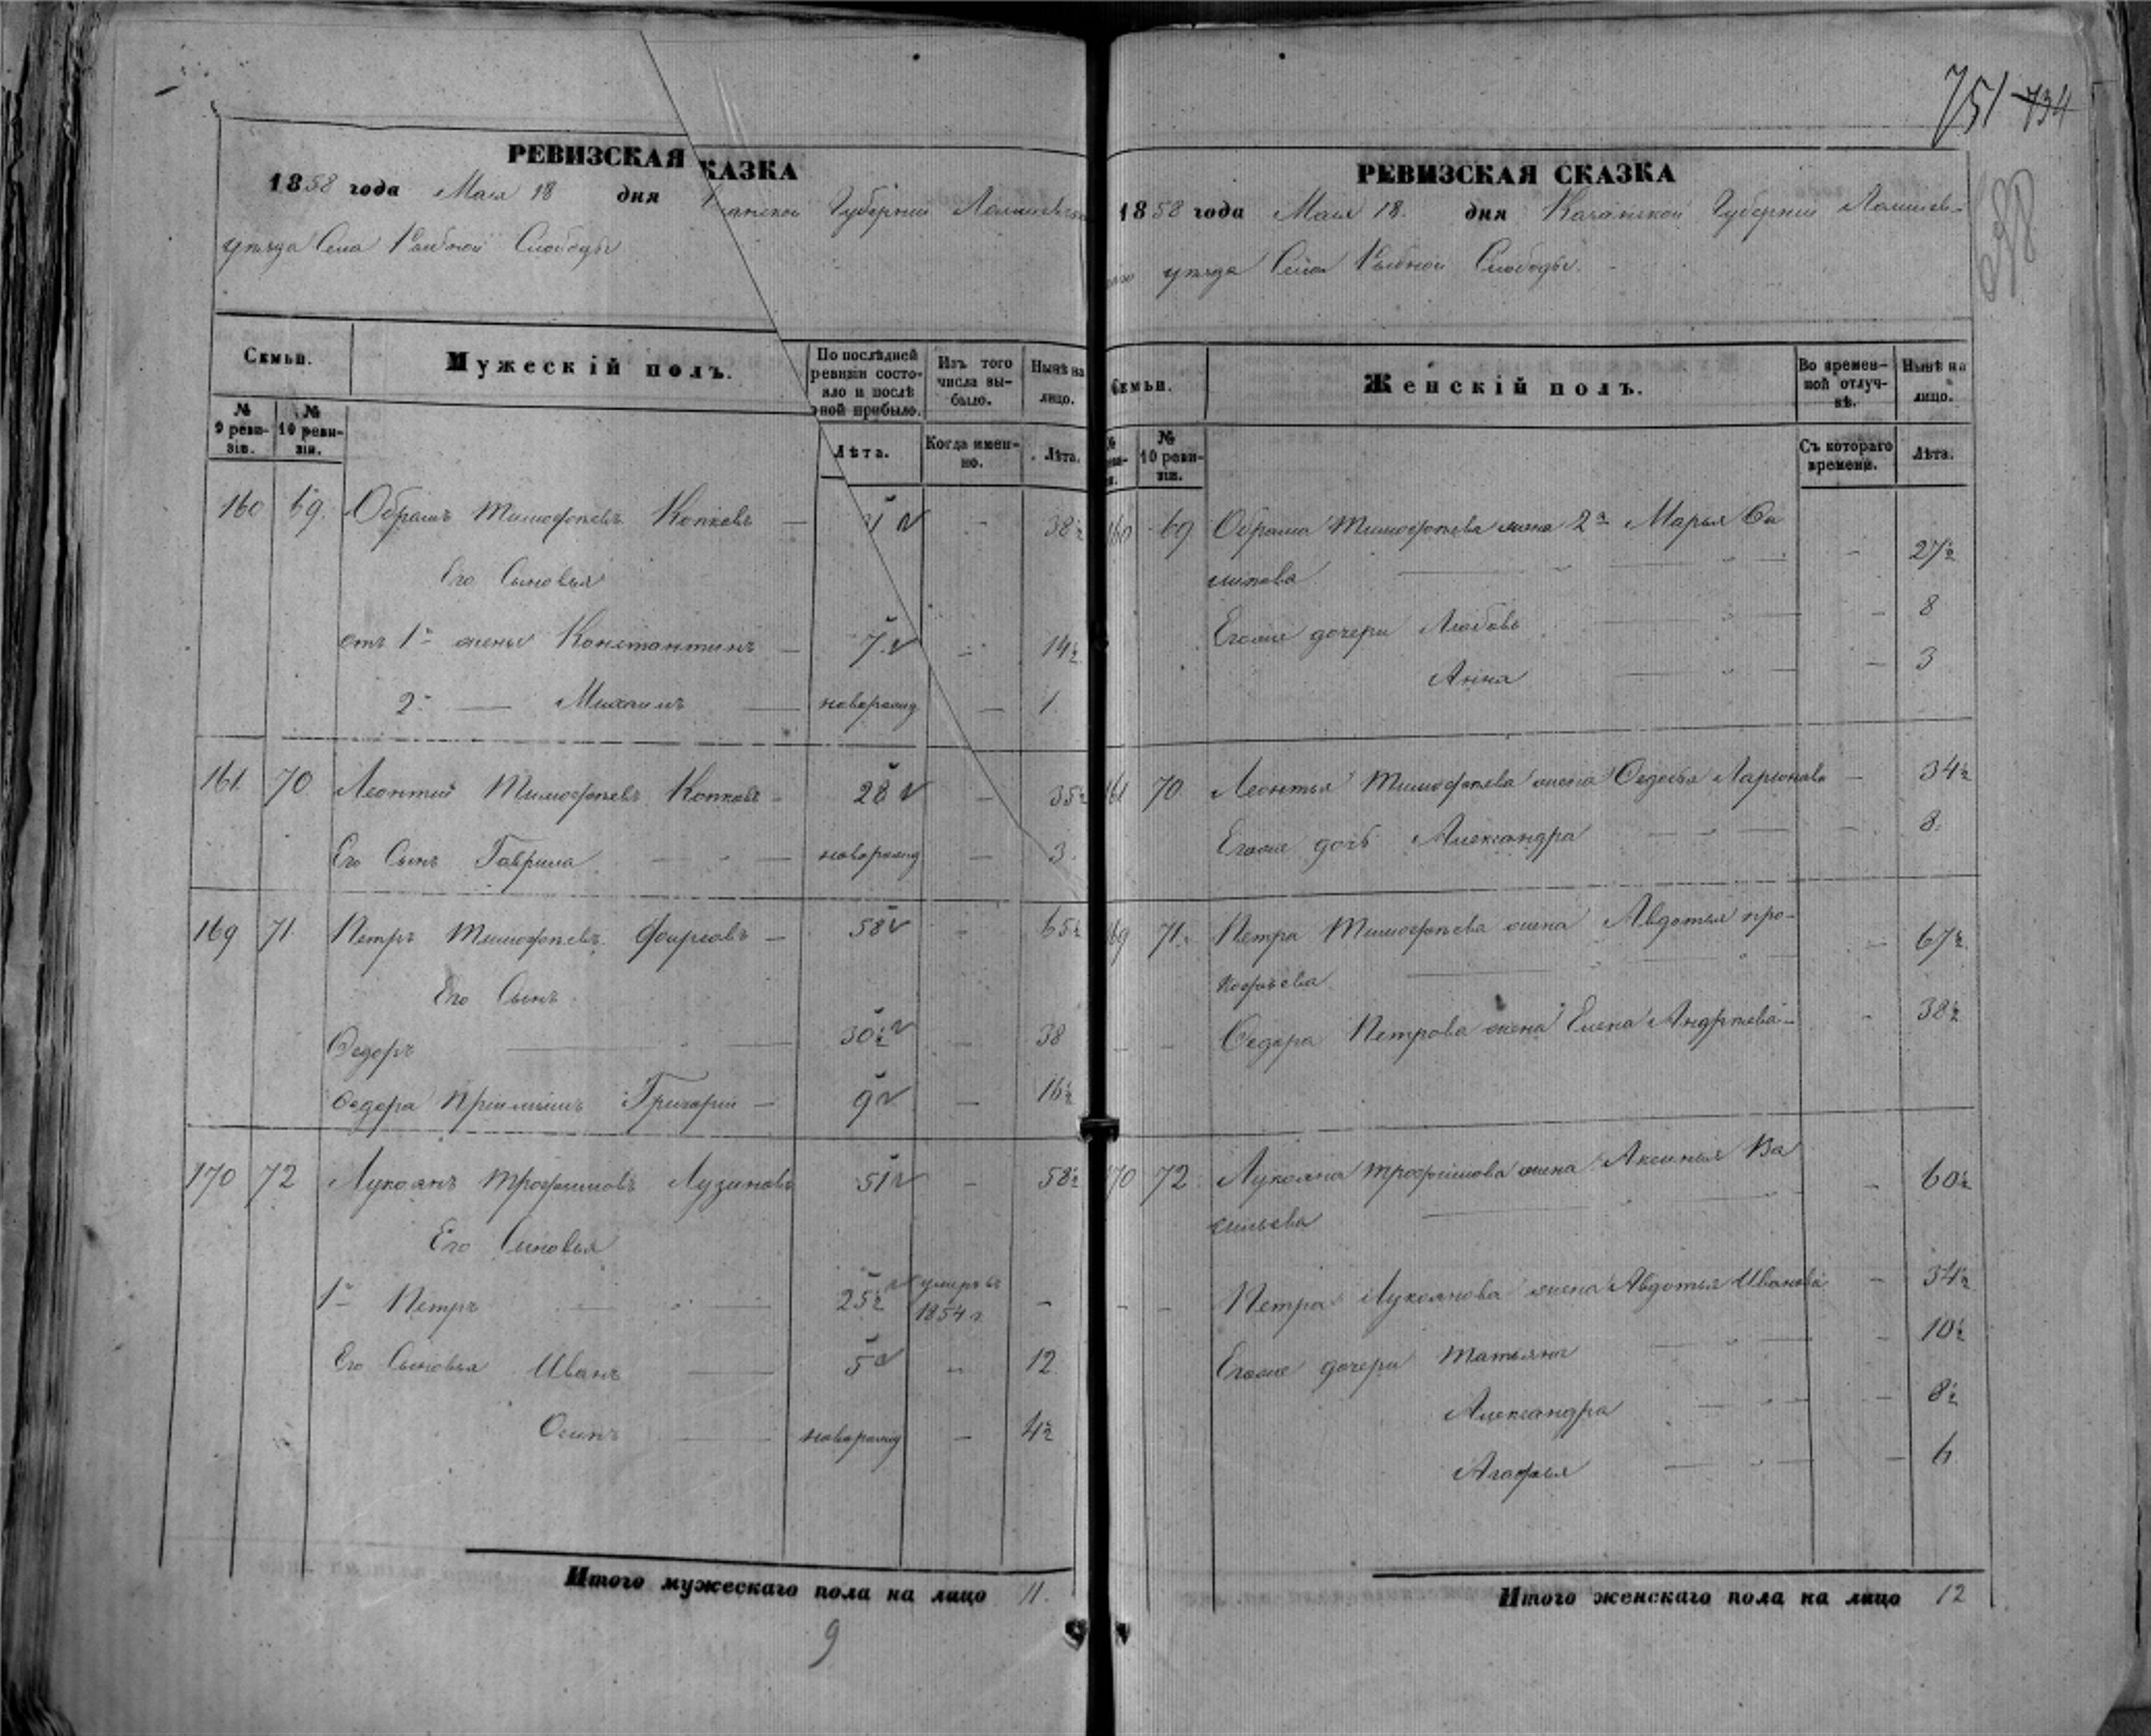 РЕВИЗСКАЯ КАЗКА
1858 года Мая 18 дня Казанской Губерніи Лаишевска
уѣзда Села Рыбной Слободы
Семьи.
Мужескій полъ.
По послѣдней ревизіи состояло и послѣ оной прибыло.
Изъ того числа выбыло.
Нынѣ на лицо.
№ 9 ревизіи.
№ 10 ревизіи.
Лѣта.
Когда именно.
Лѣта.
160 69. Обрамъ Тимофѣевъ Копковъ — — 38½
Его Сыновья
отъ 1й жены Константинъ — 7 — 14½
2й — Михаилъ — новорожд — 1
161. 70 Леонтій Тимофѣевъ Копковъ — 28 — 35½
Его Сынъ Гаврила — новорожд — 3.
169 71. Петръ Тимофѣевъ — 58 — 65½
Его Сынъ
Ѳедоръ — 30½ — 38
Ѳедора пріемышъ Григорій — 9 — 16½
170 72 Лукоянъ Трофимовъ Лузиновъ 51 — 58½
Его Сыновья
1й Петръ — 25½ умеръ въ 1854 г. —
Его Сыновья Иванъ — 5 — 12
Осипъ — новорожд — 4½
Итого мужескаго пола на лицо 11.
9
751 734
РЕВИЗСКАЯ СКАЗКА
1858 года Мая 18. дня Казанской Губерніи Лаишев-
скаго уѣзда Села Рыбной Слободы.
Семьи.
Женскій полъ.
Во временной отлучкѣ.
Нынѣ на лицо.
№ 10 ревизіи.
Съ котораго времени.
Лѣта.
160 69 Обрама Тимофѣева жена 2я Марья
— 27½
Егоже дочери Любовь — 8
Анна — 3
161 70 Леонтья Тимофѣева жена Ѳедосья Ларіонова — 34½
Егоже дочь Александра — 8.
169 71. Петра Тимофѣева жена Авдотья Про-
кофьева — 67½
Ѳедора Петрова жена Елена Андрѣева — 38½
170 72 Лукояна Трофимова жена Аксинья Ва
сильева — 60½
Петра Лукоянова жена Авдотья Иванова — 34½
Егоже дочери Татьяна — 10½
Александра — 8½
Агафья — 6
Итого женскаго пола на лицо 12